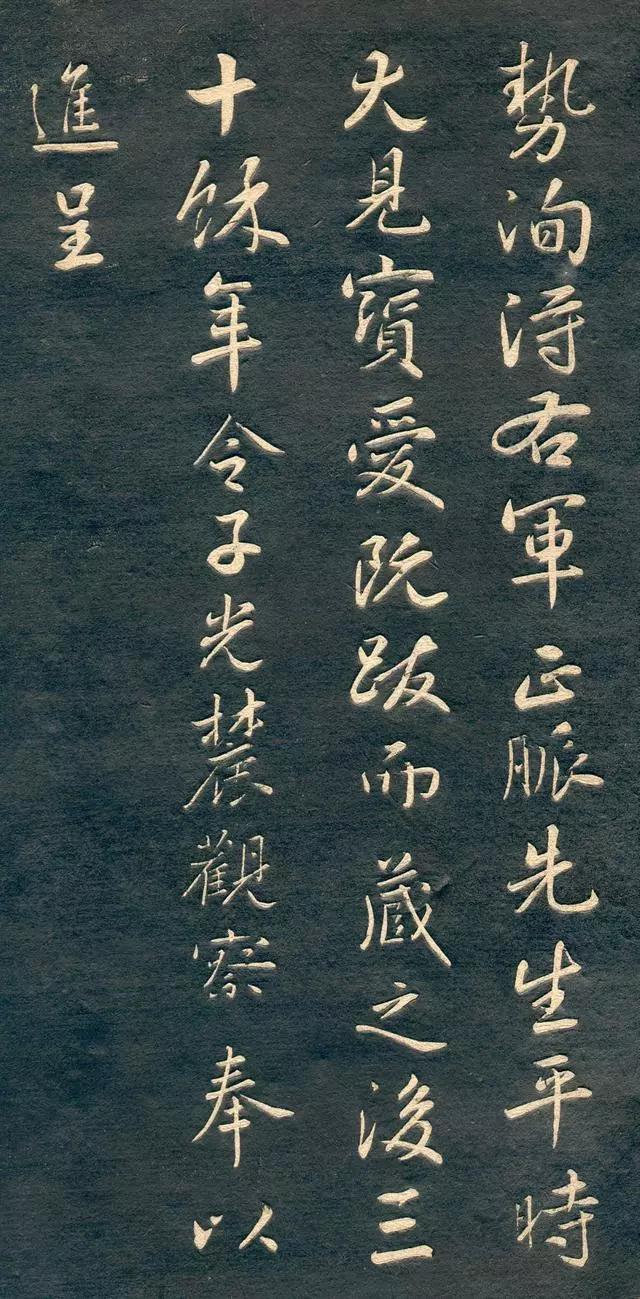 勢洵得右軍正脈先生平時
大見寶愛既跋而藏之後三
十餘年令子光農觀察奉以
進呈